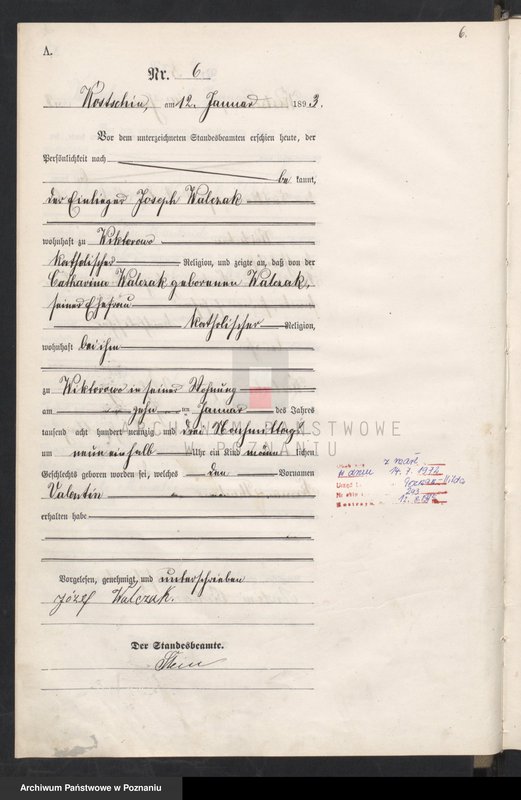 6.
A.
Nr. 6
Kostschin, am 12. Januar 1893.
Vor dem unterzeichneten Standesbeamten erschien heute, der
Persönlichkeit nach
be kannt,
der Einlieger Joseph Walczak
wohnhaft zu Wiktorowo
katholischer Religion, und zeigte an, daß von der
Catharina Walczak geborenen Walczak,
seiner Ehefrau
katholischer Religion,
wohnhaft bei ihm
zu Wiktorowo in seiner Wohnung
am zehn ten Januar des Jahres
tausend acht hundert neunzig und drei Nachmittags
um neun ein halb Uhr ein Kind männ lichen
Geschlechts geboren worden sei, welches den Vornamen
Valentin
erhalten habe
Vorgelesen, genehmigt und unterschrieben
Józef Walczak.
Der Standesbeamte.
Stein
ARCHIWUM PAŃSTWOWE
W POZNANIU
w dniu 14.7.1972
Urząd
Poznań-Wilda
Archiwum Państwowe w Poznaniu